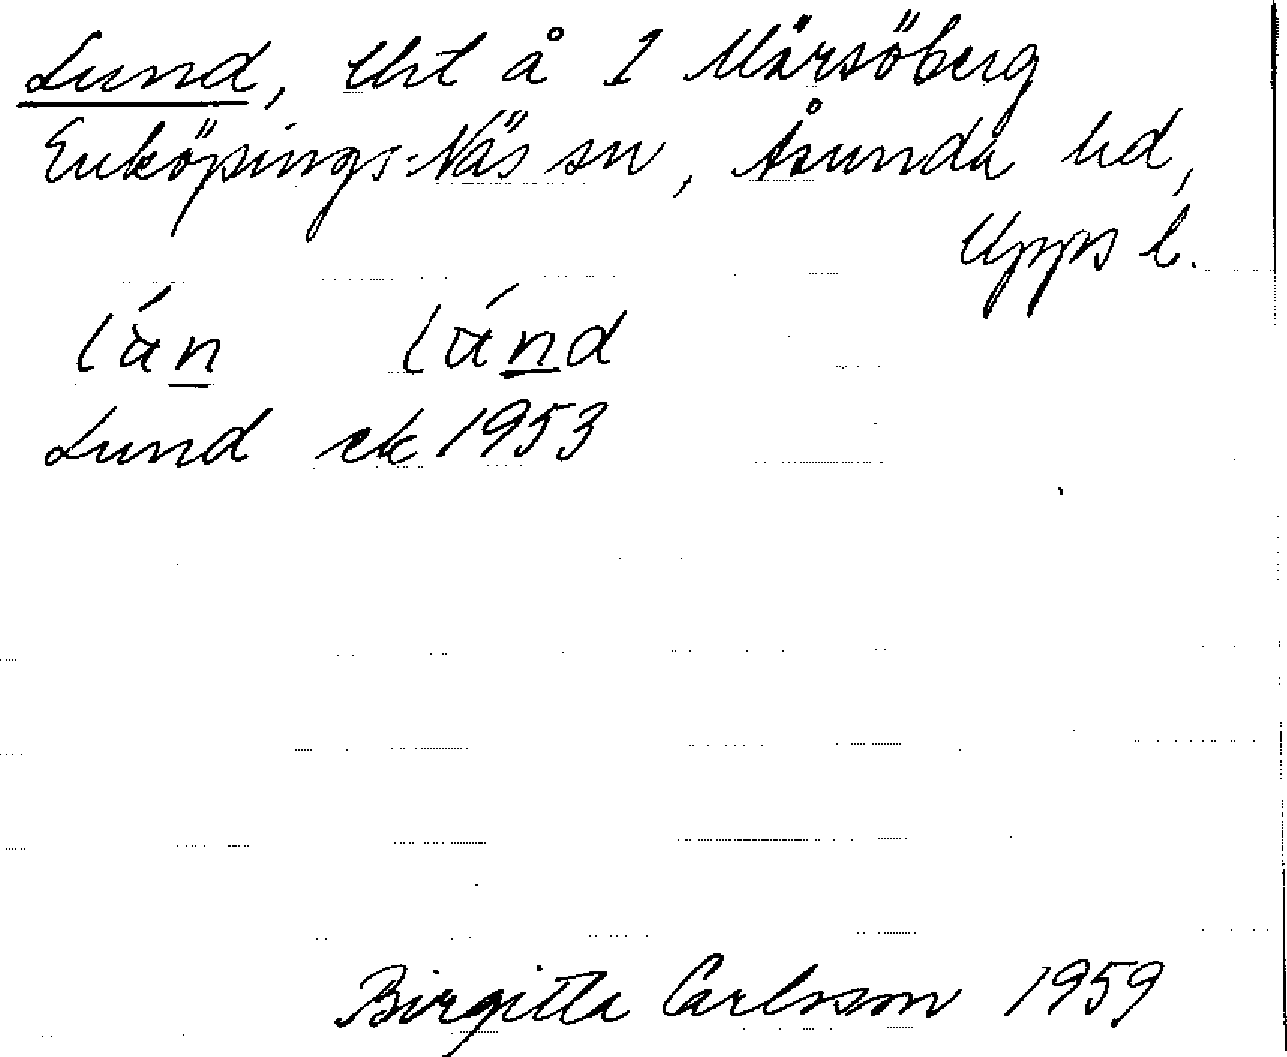 Lund, tht å 1 Mårsöberg
Enköpings-Näs sn, Åsunda hd,
Upps l.
lán lánd
Lund ek 1953
Birgitta Carlsson 1959